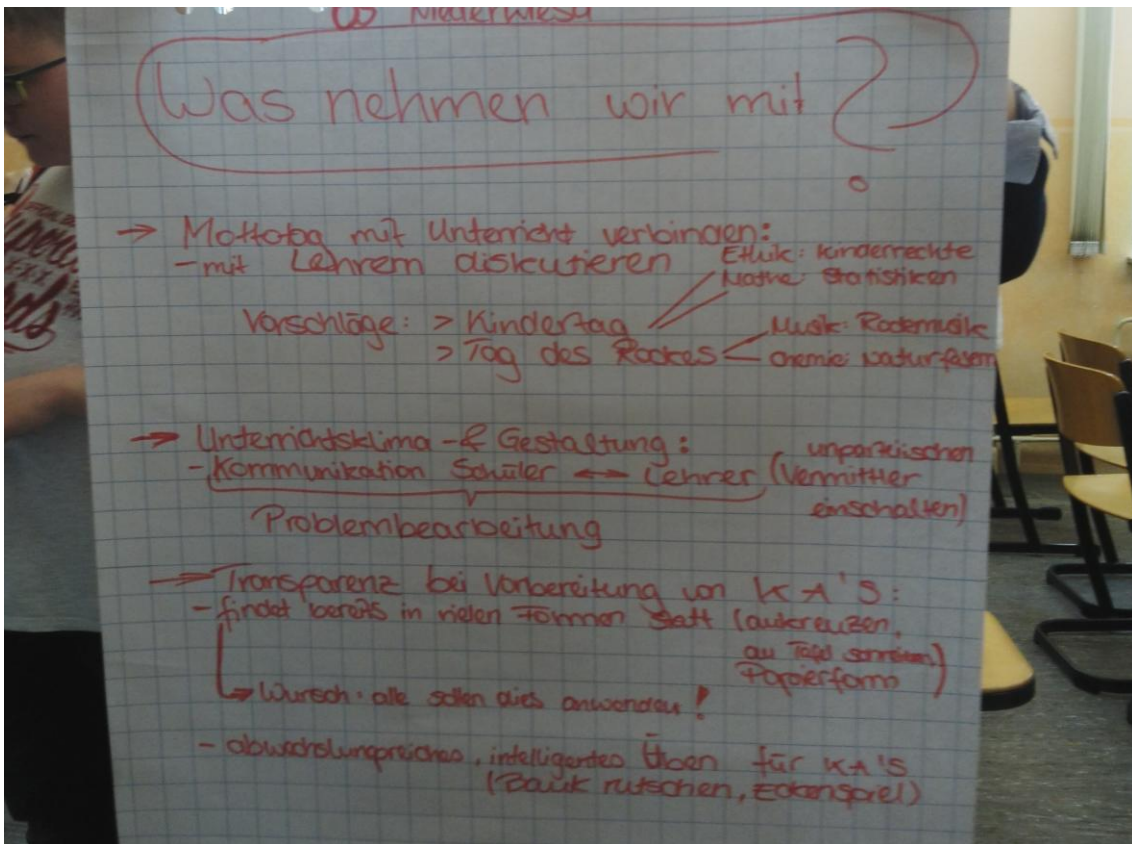 OS Niederwiesa
Was nehmen wir mit ?
→ Mottotag mit Unterricht verbinden:
- mit Lehrern diskutieren
Ethik: Kinderrechte
Mathe: Statistiken
Vorschläge: > Kindertag
> Tag des Rockes
Musik: Rockmusik
Chemie: Naturfasern
→ Unterrichtsklima - & Gestaltung:
- Kommunikation Schüler ↔ Lehrer (unparteiischen
Vermittler
einschalten)
Problembearbeitung
→ Transparenz bei Vorbereitung von KA'S:
- findet bereits in vielen Formen statt (ankreuzen,
an Tafel schreiben,
Papierform)
→ Wunsch: alle sollen dies anwenden!
- abwechslungsreiches, intelligentes Üben für KA'S
(Bank rutschen, Eckenspiel)